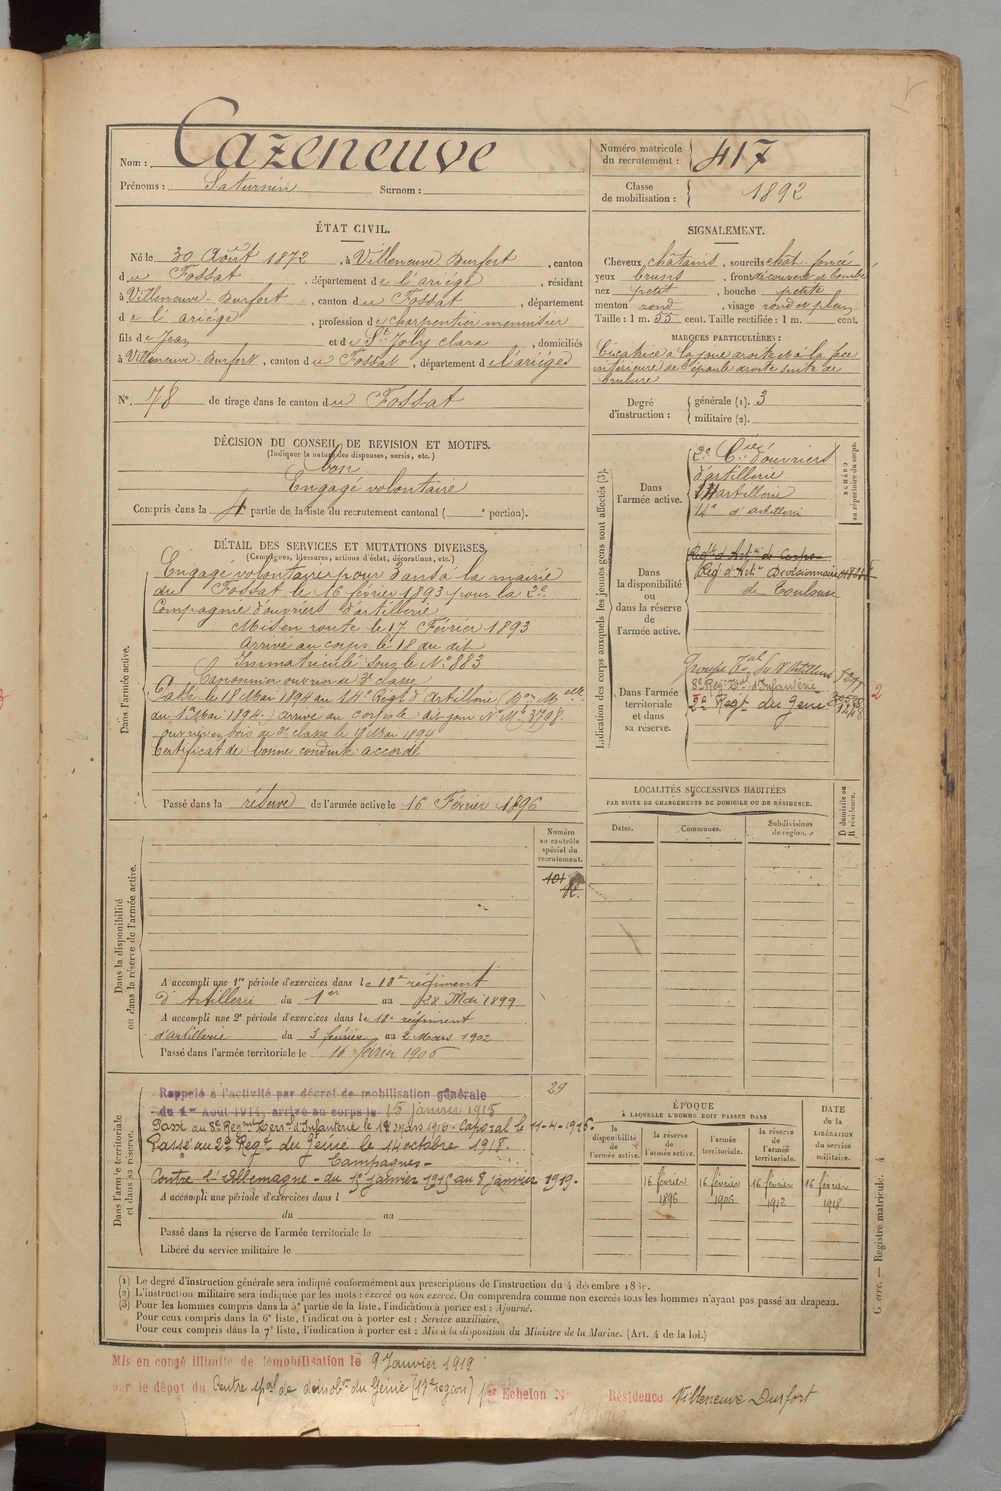 Nom : Cazeneuve
Prénoms : Saturnin Surnom :
Numéro matricule du recrutement : 417
Classe de mobilisation : 1892
ÉTAT CIVIL.
Né le 30 Août 1872, à Villeneuve Durfort, canton
du Fossat, département de l'ariège, résidant
à Villeneuve-Durfort, canton du Fossat, département
de l'ariège, profession de charpentier menuisier
fils de Jean et de St Joly clara, domiciliés
à Villeneuve-Durfort, canton du Fossat, département de l'ariège
N° 78 de tirage dans le canton du Fossat
SIGNALEMENT.
Cheveux châtains, sourcils chat. foncé
yeux bruns, front découvert et bombé
nez petit, bouche petite
menton rond, visage rond et plein
Taille : 1 m. 55 cent. Taille rectifiée : 1 m. cent.
MARQUES PARTICULIÈRES :
Cicatrice à la joue droite et à la face
intérieure de l'épaule droite suite de
brulure
Degré d'instruction : générale (1). 3
militaire (2).
DÉCISION DU CONSEIL DE REVISION ET MOTIFS.
(Indiquer la nature des dispenses, sursis, etc.)
bon
Engagé volontaire
Compris dans la 4 partie de la liste du recrutement cantonal ( e portion).
DÉTAIL DES SERVICES ET MUTATIONS DIVERSES.
(Campagnes, blessures, actions d'éclat, décorations, etc.)
Dans l'armée active.
Engagé volontaire pour 3 ans à la mairie
du Fossat le 16 février 1893 pour la 2e
Compagnie d'ouvriers d'artillerie
Mis en route le 17 Février 1893
Arrivé au corps le 18 au dit
Immatriculé sous le N° 883
Canonnier ouvrier de 2e classe
Passé le 18 Mai 1894 au 14e Régt d'Artillerie
du 1er Mai 1894. arrivé au corps le dit jour N° Mle 3798.
ouvrier en bois de 2e classe le 18 Mai 1894
Certificat de bonne conduite accordé
Passé dans la réserve de l'armée active le 16 Février 1896
Indication des corps auxquels les jeunes gens sont affectés (3).
Dans l'armée active.
2e Cie d'ouvriers
d'artillerie
14 artillerie
14e d'artillerie
NUMÉRO au répertoire du corps.
Dans la disponibilité ou dans la réserve de l'armée active.
Regt d'Artie de Corps
Reg. d'Artie Divisionnaire
de Toulouse
Dans l'armée territoriale et dans sa réserve.
8e Reg. Ter. d'Infanterie
2e Regt du Génie
2
LOCALITÉS SUCCESSIVES HABITÉES
PAR SUITE DE CHANGEMENTS DE DOMICILE OU DE RÉSIDENCE.
Dates. Communes. Subdivisions de région. D domicile ou R résidence.
Dans la disponibilité ou dans la réserve de l'armée active.
Numéro au contrôle spécial du recrutement.
101
A accompli une 1re période d'exercices dans le 18e régiment
d'Artillerie du 1er au 28 Mai 1899
A accompli une 2e période d'exercices dans le 18e régiment
d'artillerie du 3 février au 2 Mars 1902
Passé dans l'armée territoriale le 16 février 1906
Dans l'armée territoriale et dans sa réserve.
29
Rappelé à l'activité par décret de mobilisation générale
du 1er Août 1914, arrivé au corps le 15 janvier 1915
Passé au 8e Regiment Terr. d'Infanterie le 18 mars 1916. Caporal le 11-4-1916.
Passé au 2e Regt du Génie le 14 octobre 1918.
Campagnes-
Contre l'Allemagne - du 15 janvier 1915 au 8 janvier 1919.
A accompli une période d'exercices dans l
du au
Passé dans la réserve de l'armée territoriale le
Libéré du service militaire le
ÉPOQUE
À LAQUELLE L'HOMME DOIT PASSER DANS
la disponibilité de l'armée active. la réserve de l'armée active. l'armée territoriale. la réserve de l'armée territoriale.
DATE DE LA LIBÉRATION du service militaire.
16 février 1896 16 février 1906 16 février 1912 16 février 1918
(1) Le degré d'instruction générale sera indiqué conformément aux prescriptions de l'instruction du 4 décembre 18
(2) L'instruction militaire sera indiquée par les mots : exercé ou non exercé. On comprendra comme non exercés tous les hommes n'ayant pas passé au drapeau.
(3) Pour les hommes compris dans la 5e partie de la liste, l'indication à porter est : Ajourné.
Pour ceux compris dans la 6e liste, l'indication à porter est : Service auxiliaire.
Pour ceux compris dans la 7e liste, l'indication à porter est : Mis à la disposition du Ministre de la Marine. (Art. 4 de la loi.)
Guerre. — Registre matricule. 4
Mis en congé illimité de démobilisation le 9 Janvier 1919
par le dépôt du Centre spal de démobon du Génie (17e région) 1er Echelon N° Résidence Villeneuve Durfort